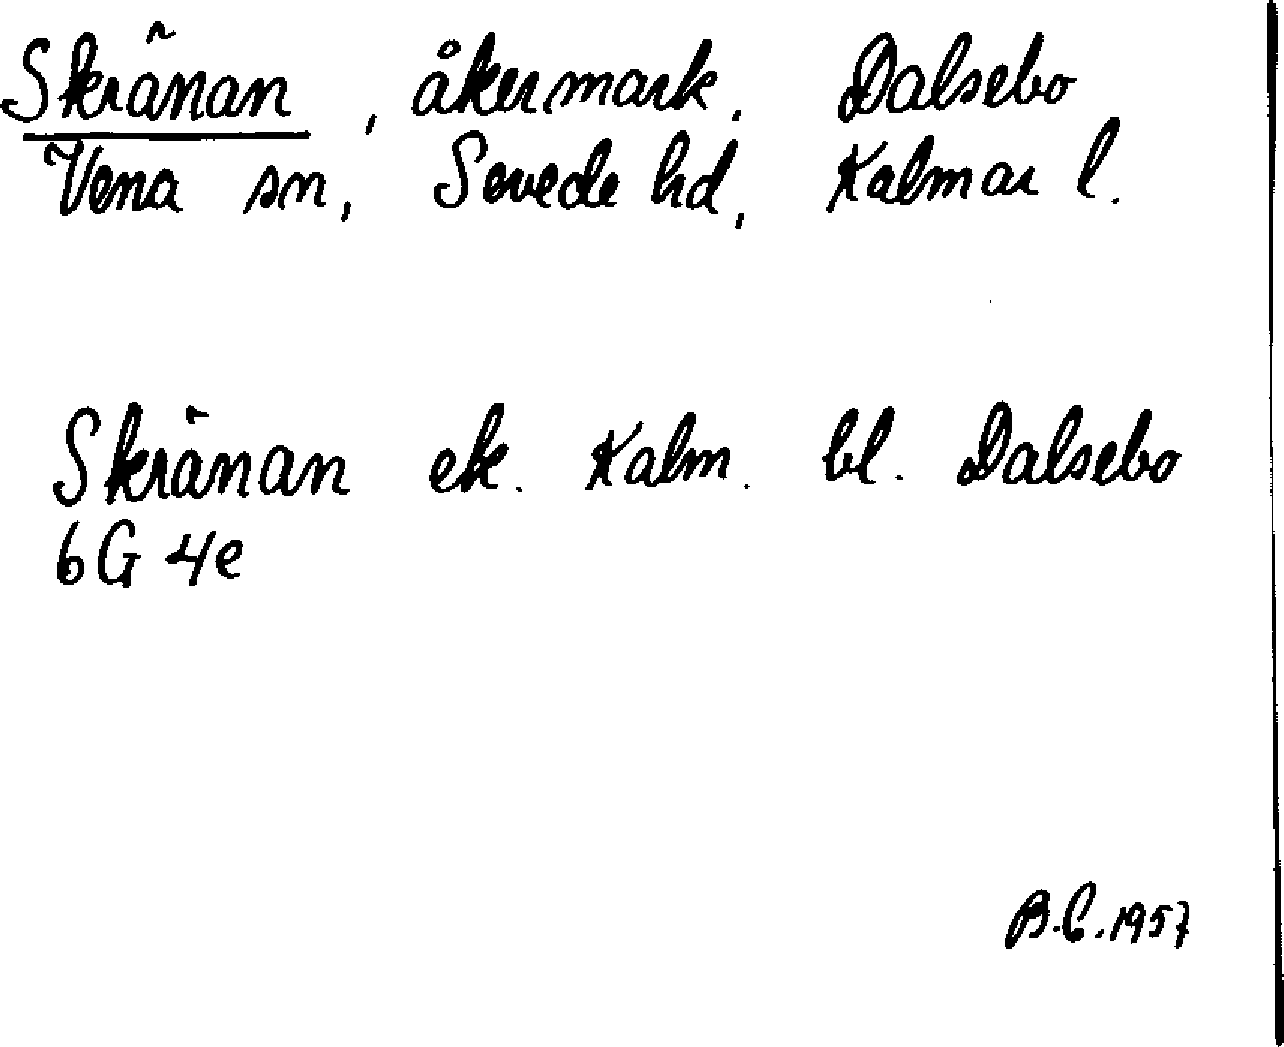 Skränan, åkermark. Dalsebo
Vena sn, Sevede hd, Kalmar l.
Skränan ek. Kalm. bl. Dalsebo
6G 4e
B.C. 1957